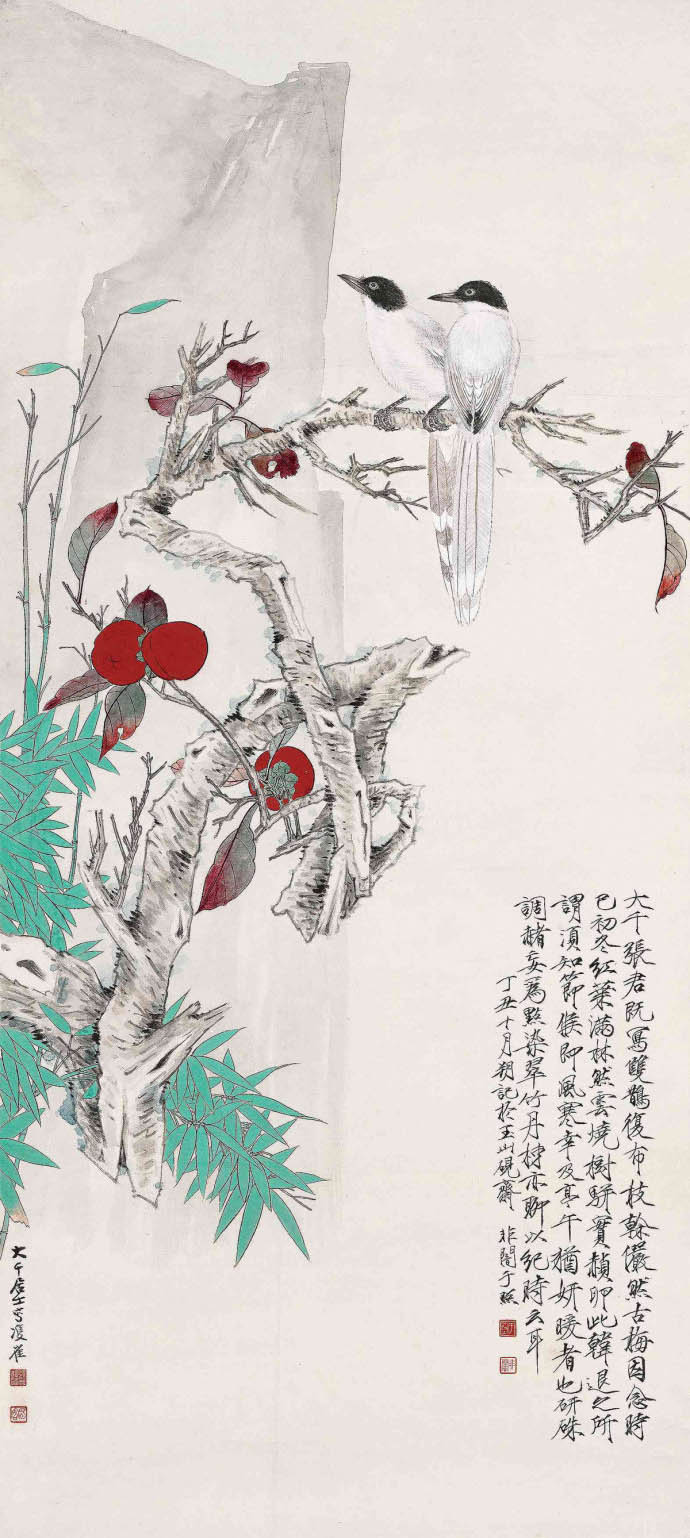 大千張君既寫雙鵲復布枝榦儼然古梅因念時
已初冬紅葉滿林然雲燒樹駢實赬卵此韓退之所
謂須知節候即風寒幸及亭午猶妍暖者也研硃
調赭妄為點染翠竹丹柹亦聊以紀時云耳
丁丑十月朔記於玉山硯齋 非闇于照
大千居士寫雙雀